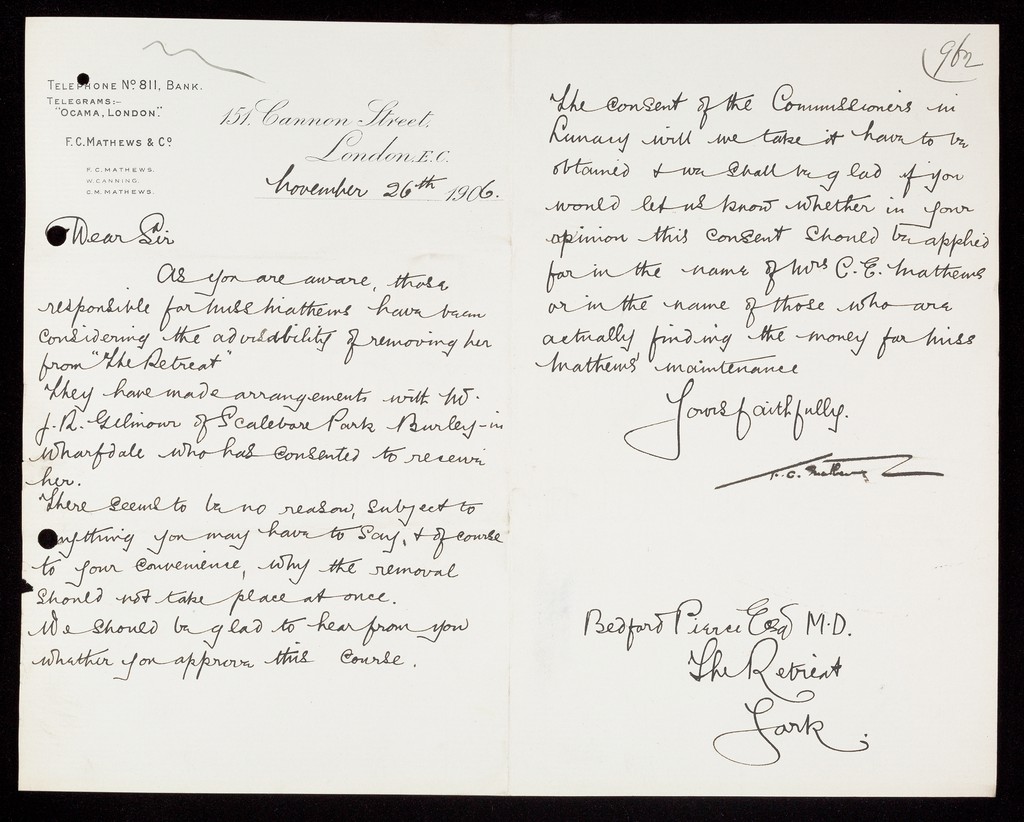 TELEPHONE Nº 811, BANK.
TELEGRAMS:-
"OCAMA, LONDON".
F.C. MATHEWS & Cº
F.C. MATHEWS.
W. CANNING.
C.M. MATHEWS.
151, Cannon Street,
London, E.C.
November 26th 1906.
Dear Sir
As you are aware, those
responsible for Miss Mathews have been
considering the advisability of removing her
from "The Retreat"
They have made arrangements with Mr.
J. R. Gilmour of Scalebore Park Burley-in
Wharfdale who has consented to receive
her.
There seems to be no reason, subject to
anything you may have to say, & of course
to your convenience, why the removal
should not take place at once.
We should be glad to hear from you
whether you approve this course.
962
The consent of the Commissioners in
Lunacy will we take it have to be
obtained & we shall be glad if you
would let us know whether in your
opinion this consent should be applied
for in the name of Mrs C. E. Mathews
or in the name of those who are
actually finding the money for Miss
Mathews' maintenance
Yours faithfully.
F. C. Mathews
Bedford Pierce Esq M.D.
The Retreat
York.